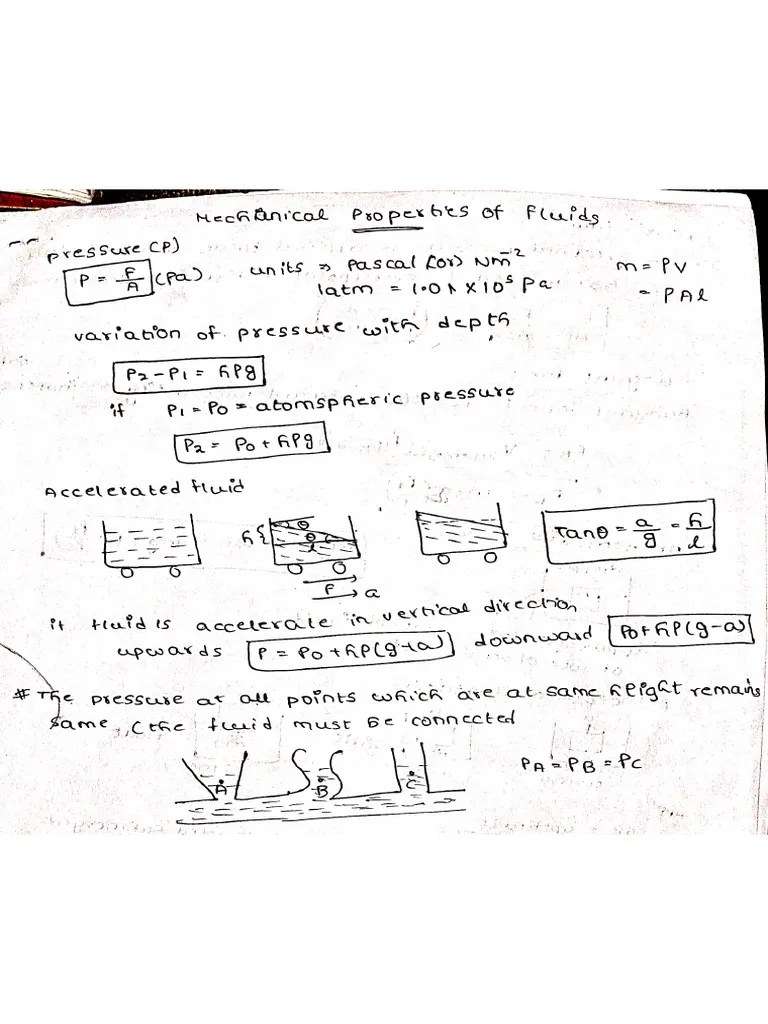 Mechanical Properties of Fluids
pressure (P)
P = F/A (Pa). units ⇒ pascal (or) Nm⁻²
1atm = 1.01 x 10⁵ Pa
m = PV
= PAl
variation of pressure with depth
P2 - P1 = hPg
if P1 = P0 = atomspheric pressure
P2 = P0 + hPg
Accelerated fluid
h θ θ l
F
a
Tanθ = a/g = h/l
if fluid is accelerate in vertical direction
upwards P = P0 + hP(g+a) downward P0+hP(g-a)
# The pressure at all points which are at same height remains
same, (the fluid must be connected
A B C
PA = PB = PC